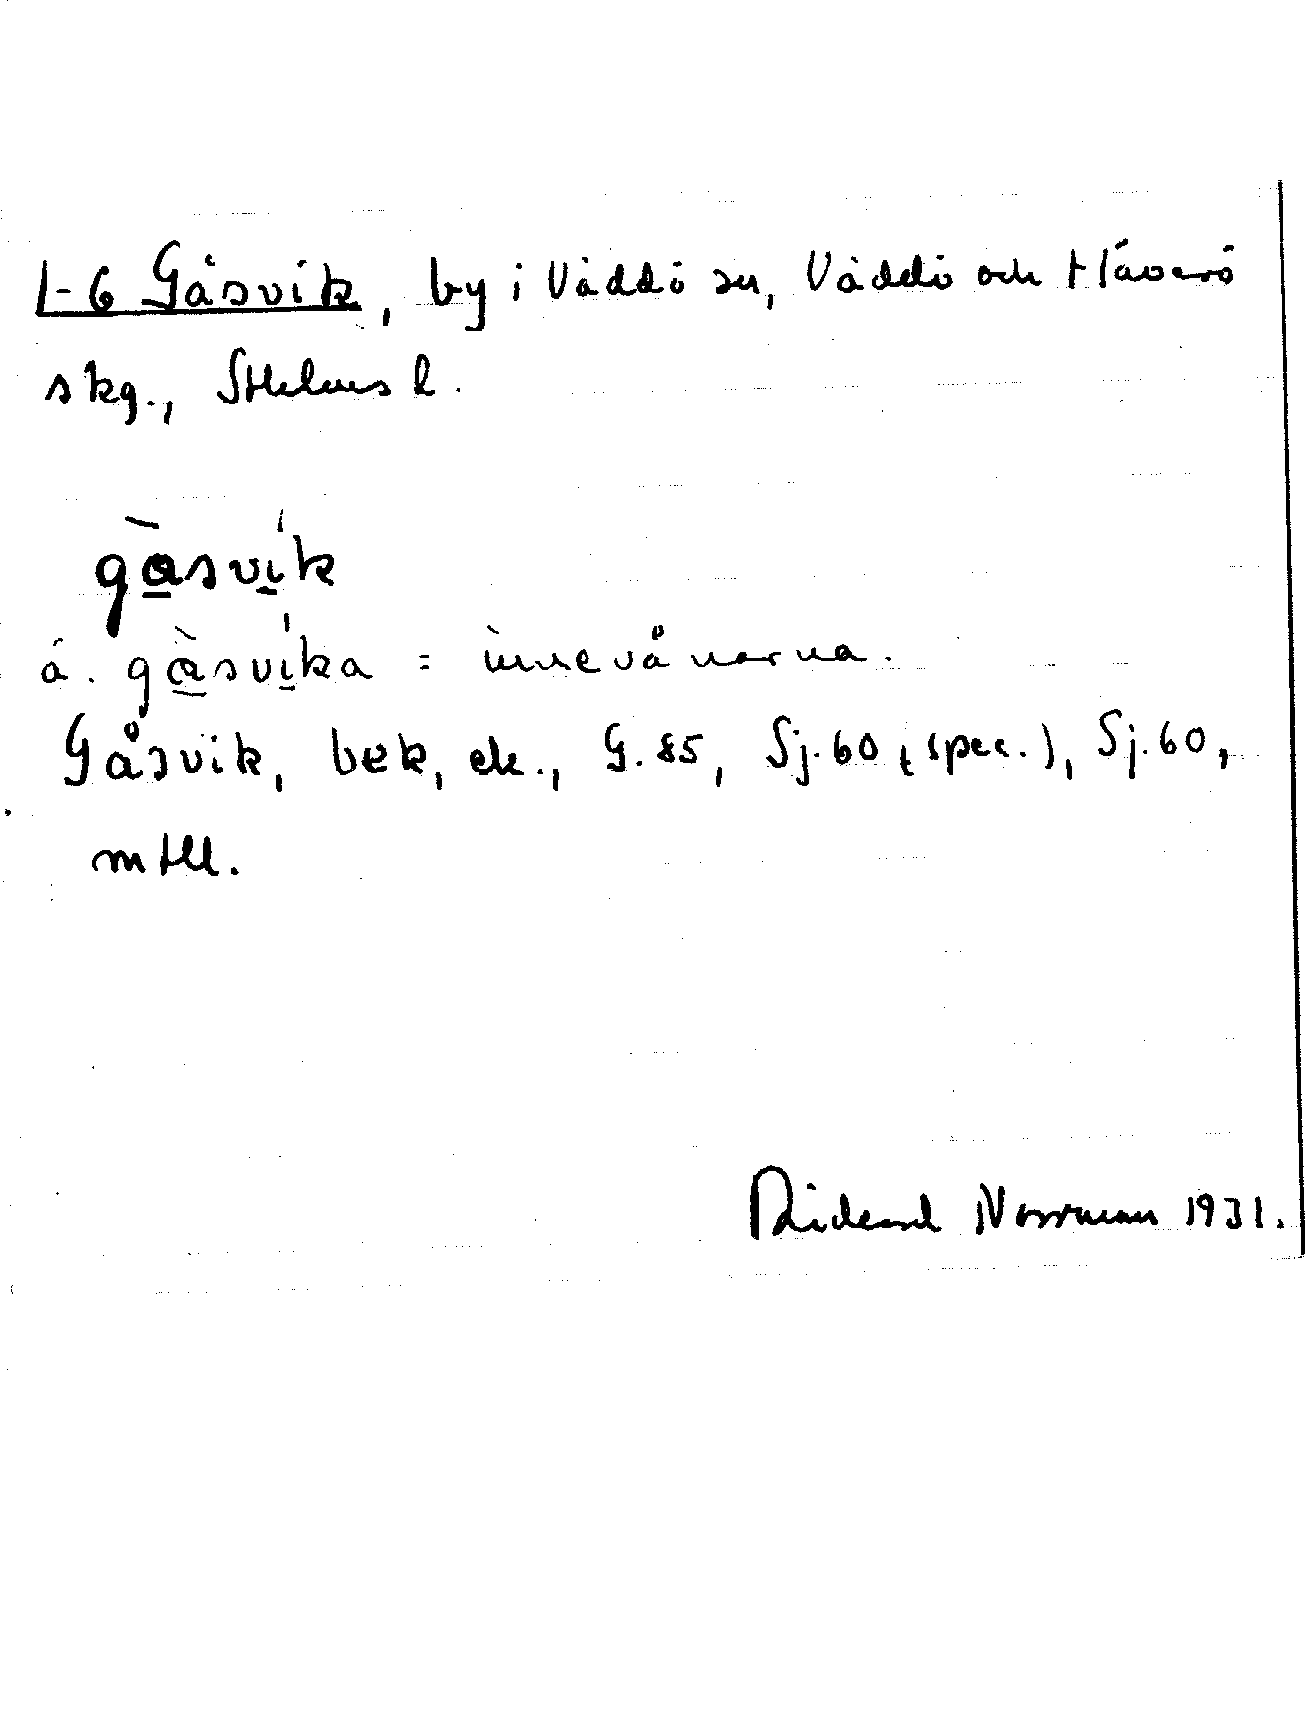 1-6 Gåsvik, by i Väddö sn, Väddö och Häverö
skg., Sthlms l.
gàsvík
á. gàsvíka = innevånarna.
Gåsvik, bek, ek., G. 85, Sj. 60 (spec.), Sj. 60,
mtll.
Rickard Norrman 1931.